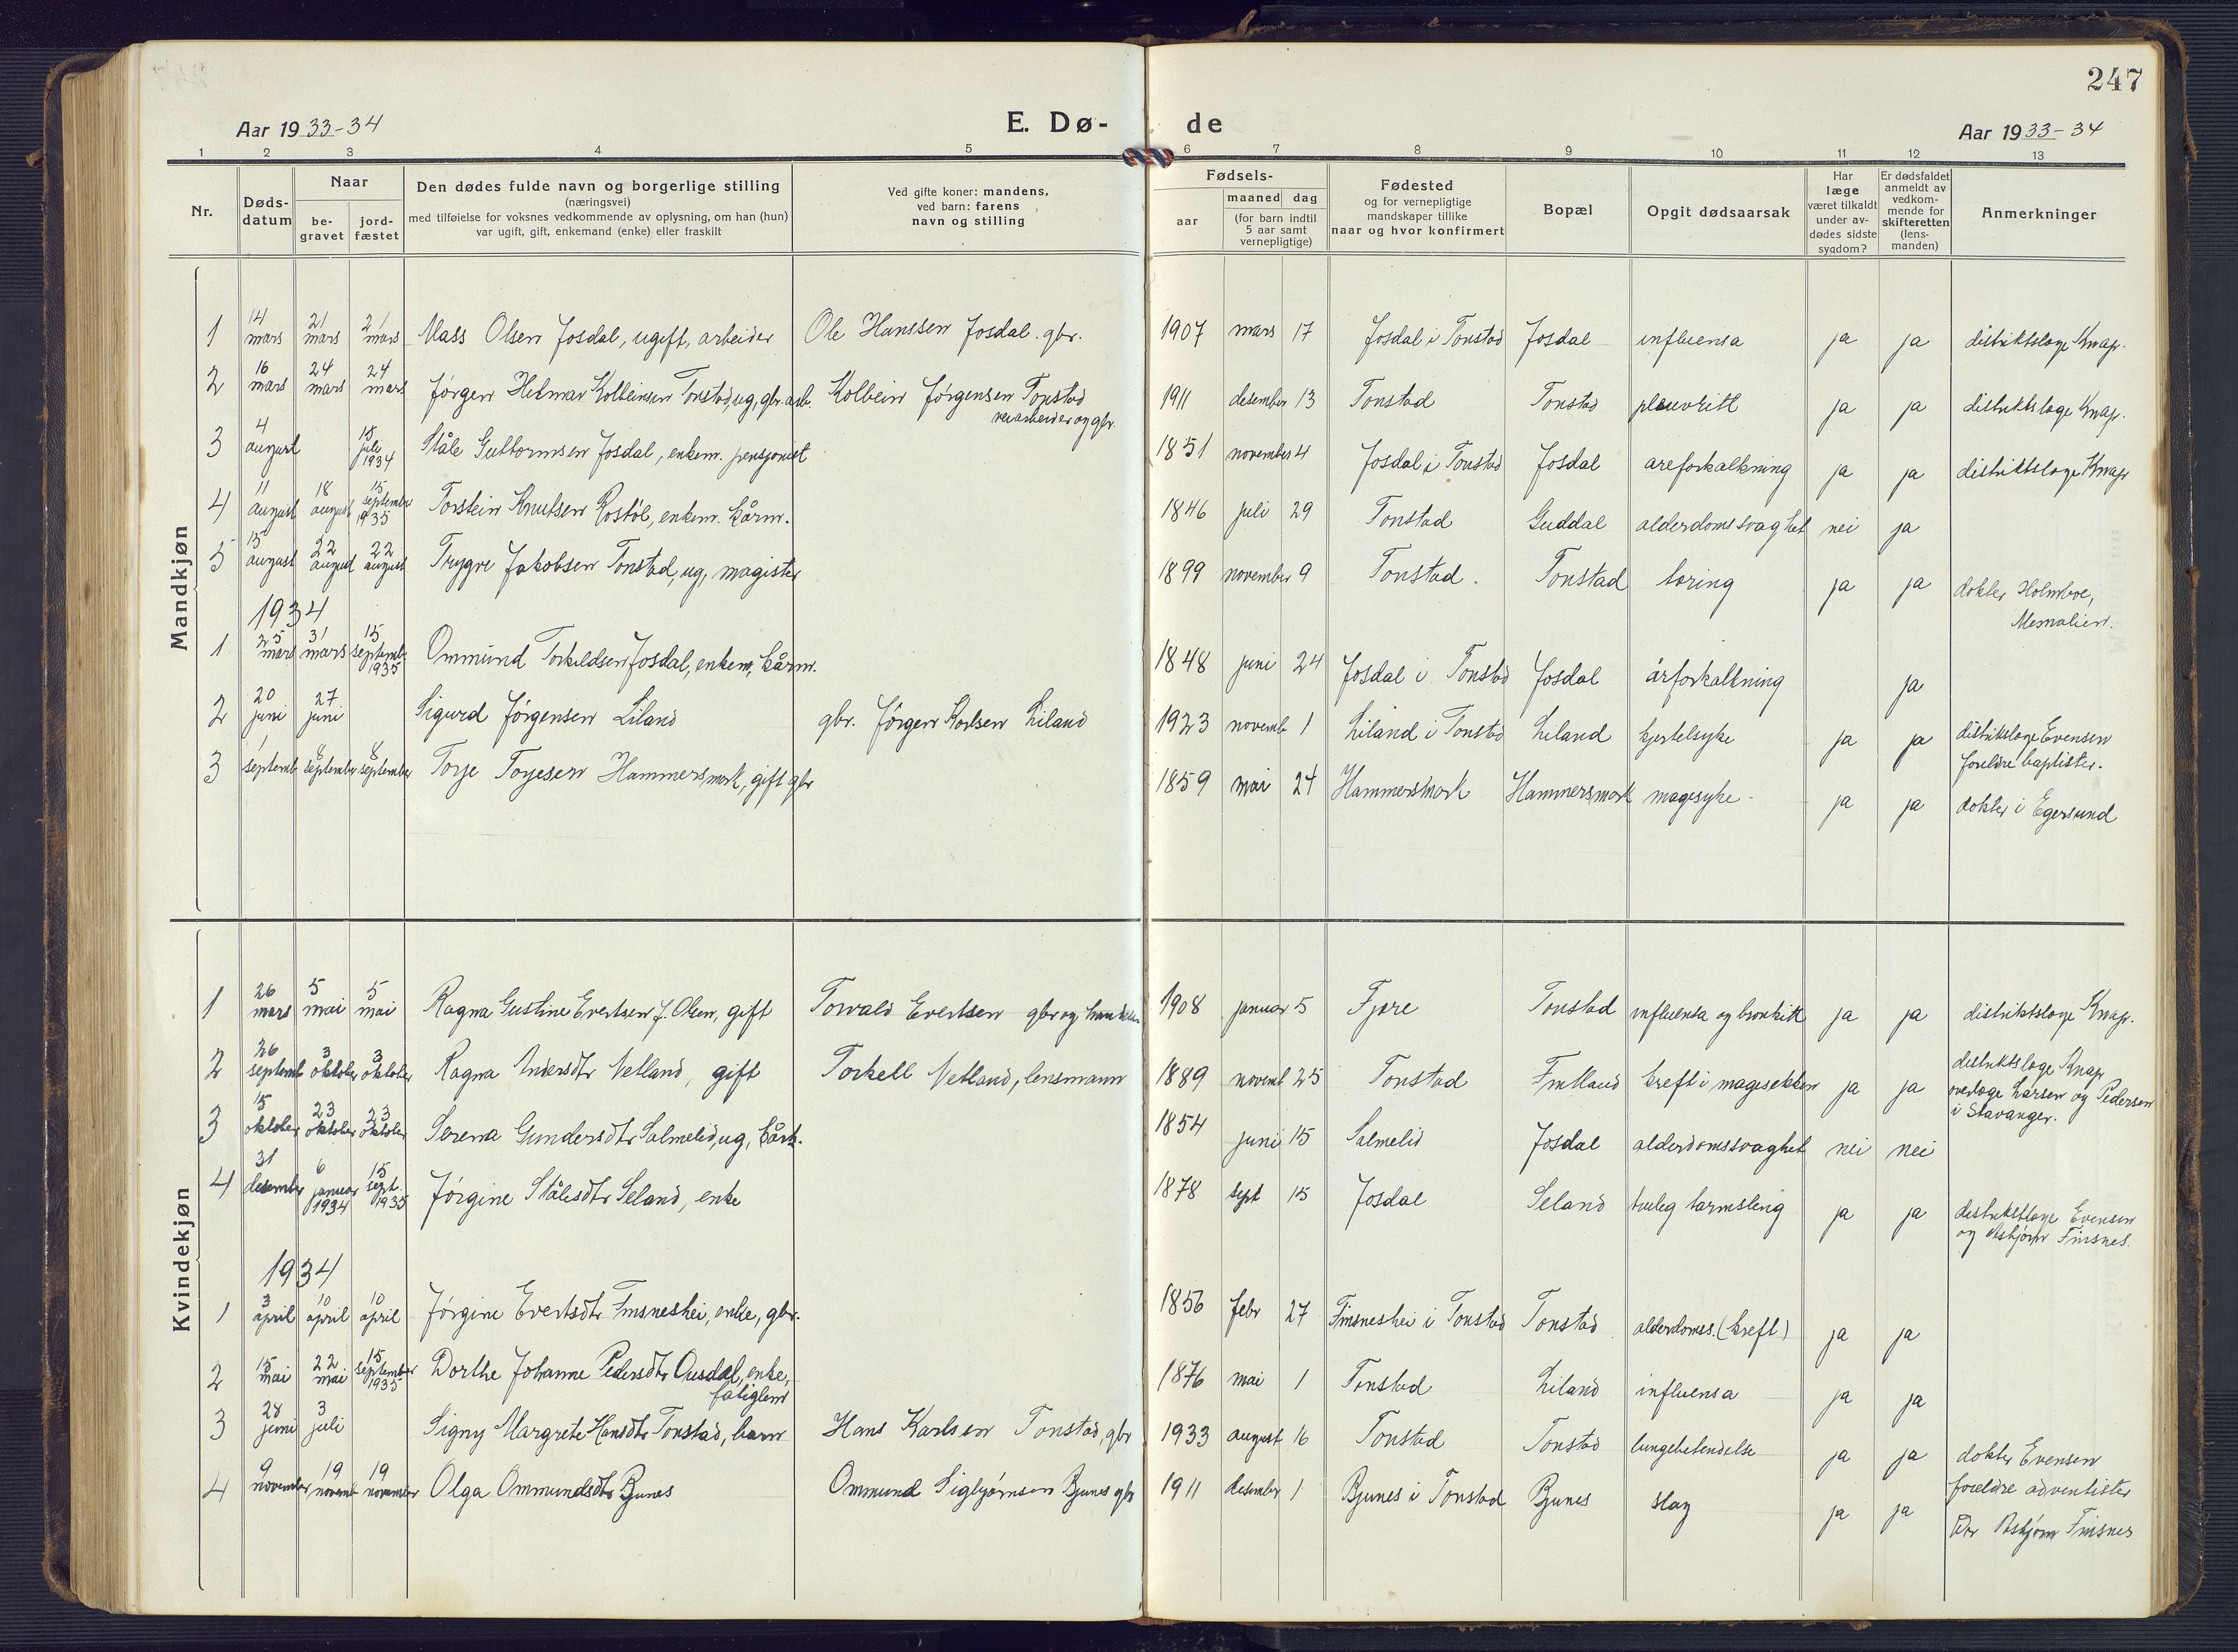 247
Aar 1933-34 E. Dø- de Aar 1933-34
1 2 3 4 5 6 7 8 9 10 11 12 13
Nr.
Døds-
datum
Naar
be-
gravet
jord-
fæstet
Den dødes fulde navn og borgerlige stilling
(næringsvei)
med tilføielse for voksnes vedkommende av oplysning, om han (hun)
var ugift, gift, enkemand (enke) eller fraskilt
Ved gifte koner: mandens,
ved barn: farens
navn og stilling
Fødsels-
aar
maaned dag
(for barn indtil
5 aar samt
vernepligtige)
Fødested
og for vernepligtige
mandskaper tillike
naar og hvor konfirmert
Bopæl
Opgit dødsaarsak
Har
læge
været tilkaldt
under av-
dødes sidste
sygdom?
Er dødsfaldet
anmeldt av
vedkom-
mende for
skifteretten
(lens-
manden)
Anmerkninger
Mandkjøn
1 14 mars 21 mars 21 mars Mass Olsen Josdal, ugift, arbeider Ole Hanssen Josdal. gbr. 1907 mars 17 Josdal i Tonstad Josdal influensa ja ja distriktslæge Knap.
2 16 mars 24 mars 24 mars Jørgen Helmar Kolbeinsen Tonstad, ug, gbr. arb. Kolbein Jørgensen Tonstad
veiarbeider og gbr. 1911 desember 13 Tonstad Tonstad pleuvritt ja ja distriktslæge Knap.
3 4 august 15 juli 1934 Ståle Guttormsen Josdal, enkem. pensjonist 1851 november 4 Josdal i Tonstad Josdal areforkalkning ja ja distriktslæge Knap
4 11 august 18 august 15 september 1935 Torstein Knutsen Rostøl, enkem. kårm. 1846 juli 29 Tonstad Guddal alderdomssvaghet nei ja
5 15 august 22 august 22 august Trygve Jakobsen Tonstad, ug, magister 1899 november 9 Tonstad. Tonstad tæring ja ja dokter Holmboe,
Mesnalien.
1934
1 25 mars 31 mars 15 septemb 1935 Ommund Torkildsen Josdal, enkem, kårm. 1848 juni 24 Josdal i Tonstad Josdal årforkalkning ja
2 20 juni 27 juni Sigurd Jørgensen Liland gbr. Jørgen Karlsen Liland 1923 novemb 1 Liland i Tonstad Liland kjertelsyke ja ja distriktslæge Evensen
foreldre baptister.
3 1 septemb 8 september 8 september Torje Torjesen Hammersmork, gift gbr 1859 mai 24 Hammersmork Hammersmork magesyke ja ja dokter i Egersund
Kvindekjøn
1 26 mars 5 mai 5 mai Ragna Gustine Evertsen f. Olsen, gift Torvald Evertsen gbr og 1908 januar 5 Fjære Tonstad influensa og bronkitt ja ja distriktslæge Knap.
2 26 septemb 3 oktober 3 oktober Ragna Andersdtr Netland, gift Torkell Netland, lensmann 1889 novemb 25 Tonstad Netland kreft i magesekken ja ja distriktslæge Knap
overlæge Larsen og Pedersen
i Stavanger.
3 15 oktober 23 oktober 23 oktober Serena Gundersdtr Salmelid, ug, kårk. 1854 juni 15 Salmelid Josdal alderdomssvaghet nei nei
4 31 desember 6 januar 1934 15 sept. 1935 Jørgine Stålesdtr Seland, enke 1878 sept 15 Josdal Seland tarmsleng ja ja distriktslæge Evensen
og Asbjørn Finsnes.
1934
1 3 april 10 april 10 april Jørgine Evertsdtr Finsneshei, enke, gbr. 1856 febr 27 Finsneshei i Tonstad Tonstad alderdomss. (kreft) ja ja
2 15 mai 22 mai 15 september 1935 Dorthe Johanne Pedersdtr Ousdal, enke,
fatiglem 1876 mai 1 Tonstad Liland influensa ja ja
3 28 juni 3 juli Signy Margrete Hansdtr Tonstad, barn Hans Karlsen Tonstad, gbr 1933 august 16 Tonstad Tonstad lungebetendelse ja ja dokter Evensen
foreldre adventister
4 9 november 19 novemb 19 november Olga Ommundsdtr Bjunes Ommund Sigbjørnsen Bjunes gbr 1911 desember 1 Bjunes i Tonstad Bjunes slag ja ja Dr Asbjørn Finsnes